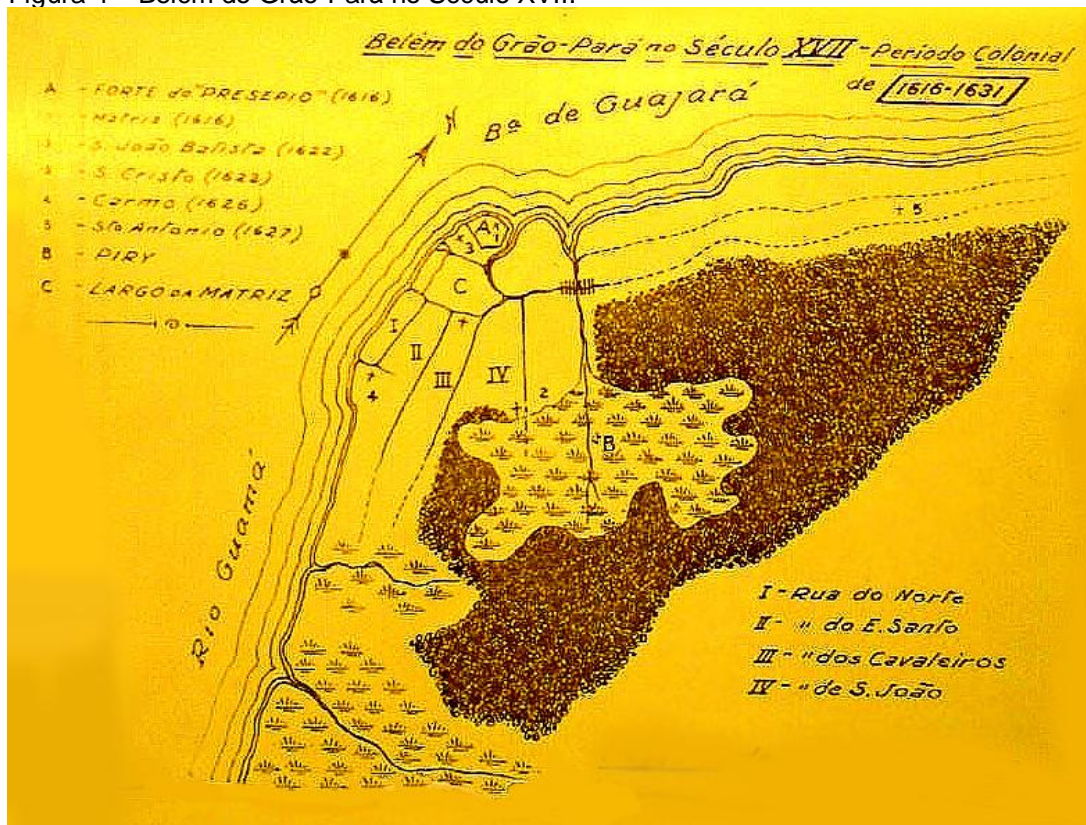 Belém do Grão-Pará no Século XVII - Período Colonial
de 1616-1631
A - FORTE do "PRESEPIO" (1616)
- Matriz (1616)
- S. João Batista (1622)
- S. Cristo (1622)
4 - Carmo (1626)
5 - Sto Antonio (1627)
B - PIRY
C - LARGO DA MATRIZ
N
Bª de Guajará
+ 5
A 1
+ 3
C
I
II
III
IV
+ 4
2
+B
Rio Guamá
I - Rua do Norte
II - " do E. Santo
III - " dos Cavaleiros
IV - " de S. João